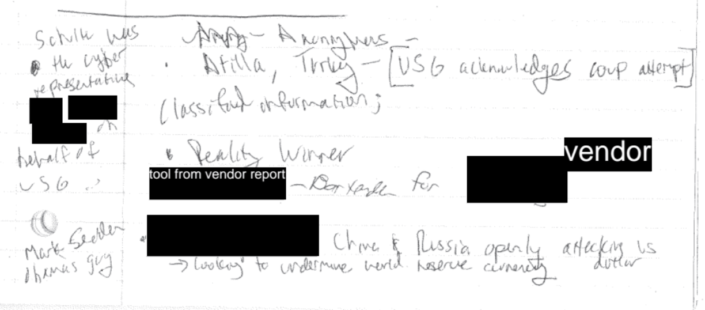 Schulte was
the cyber
representative
on
behalf of
USG
Mark
Obamas guy
Anonymous -
• Atilla, Turkey - [USG acknowledges coup attempt]
Classified information;
• Reality Winner
tool from vendor report
for
vendor
China & Russia openly attacking us
dollar
→ looking to undermine world reserve currency